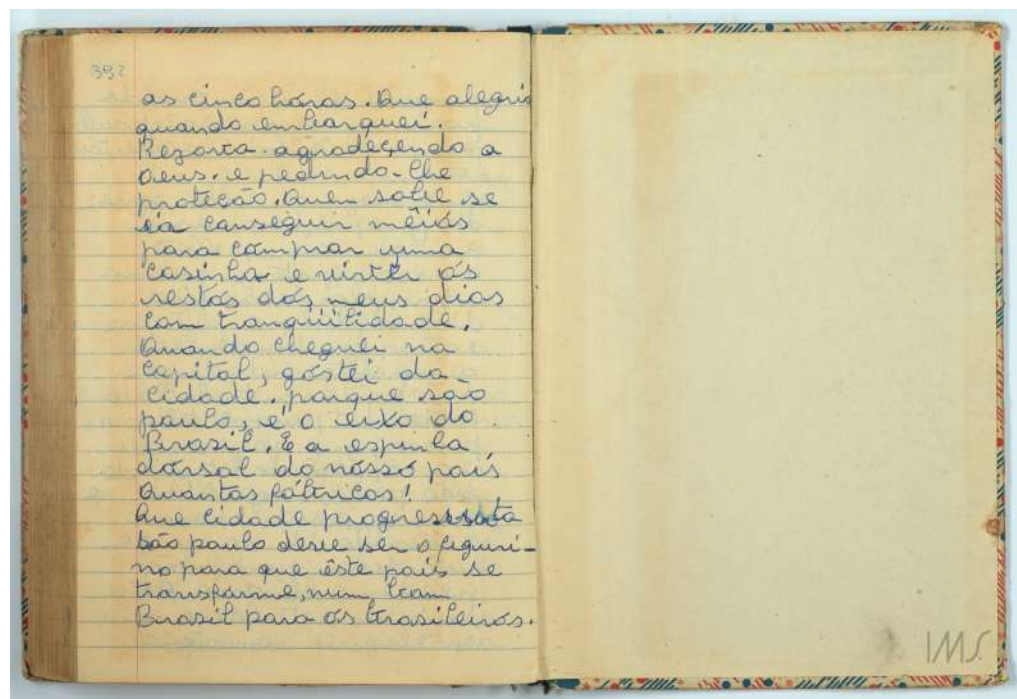 392
as cinco hóras. Que alegria
quando embarquei.
Rezava. agradeçendo a
Deus. e pedindo-lhe
proteção. Quem sabe se
ia conseguir mêiós
para cómprar uma
casinha e viver ós
réstós dós meus dias
com tranqüilidade.
Quando cheguei na
Capital, góstei da
cidade. porque são
paulo, é o eixo do
Brasil. É a espinha
dórsal do nósso país
Quantas fábricas!
Que cidade progressista
são paulo deve ser o figuri-
no para que êste país se
transfórme, num bom
Brasil para ós brasileirós.
IMS